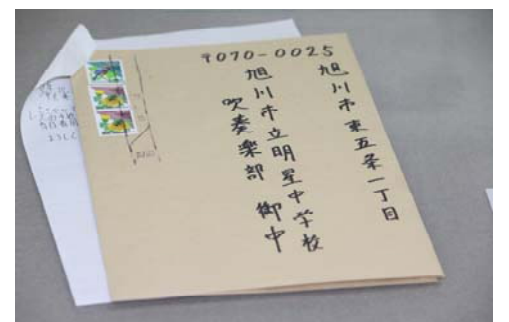 〒070-0025
旭川市東五条一丁目
旭川市立明星中学校
吹奏楽部 御中